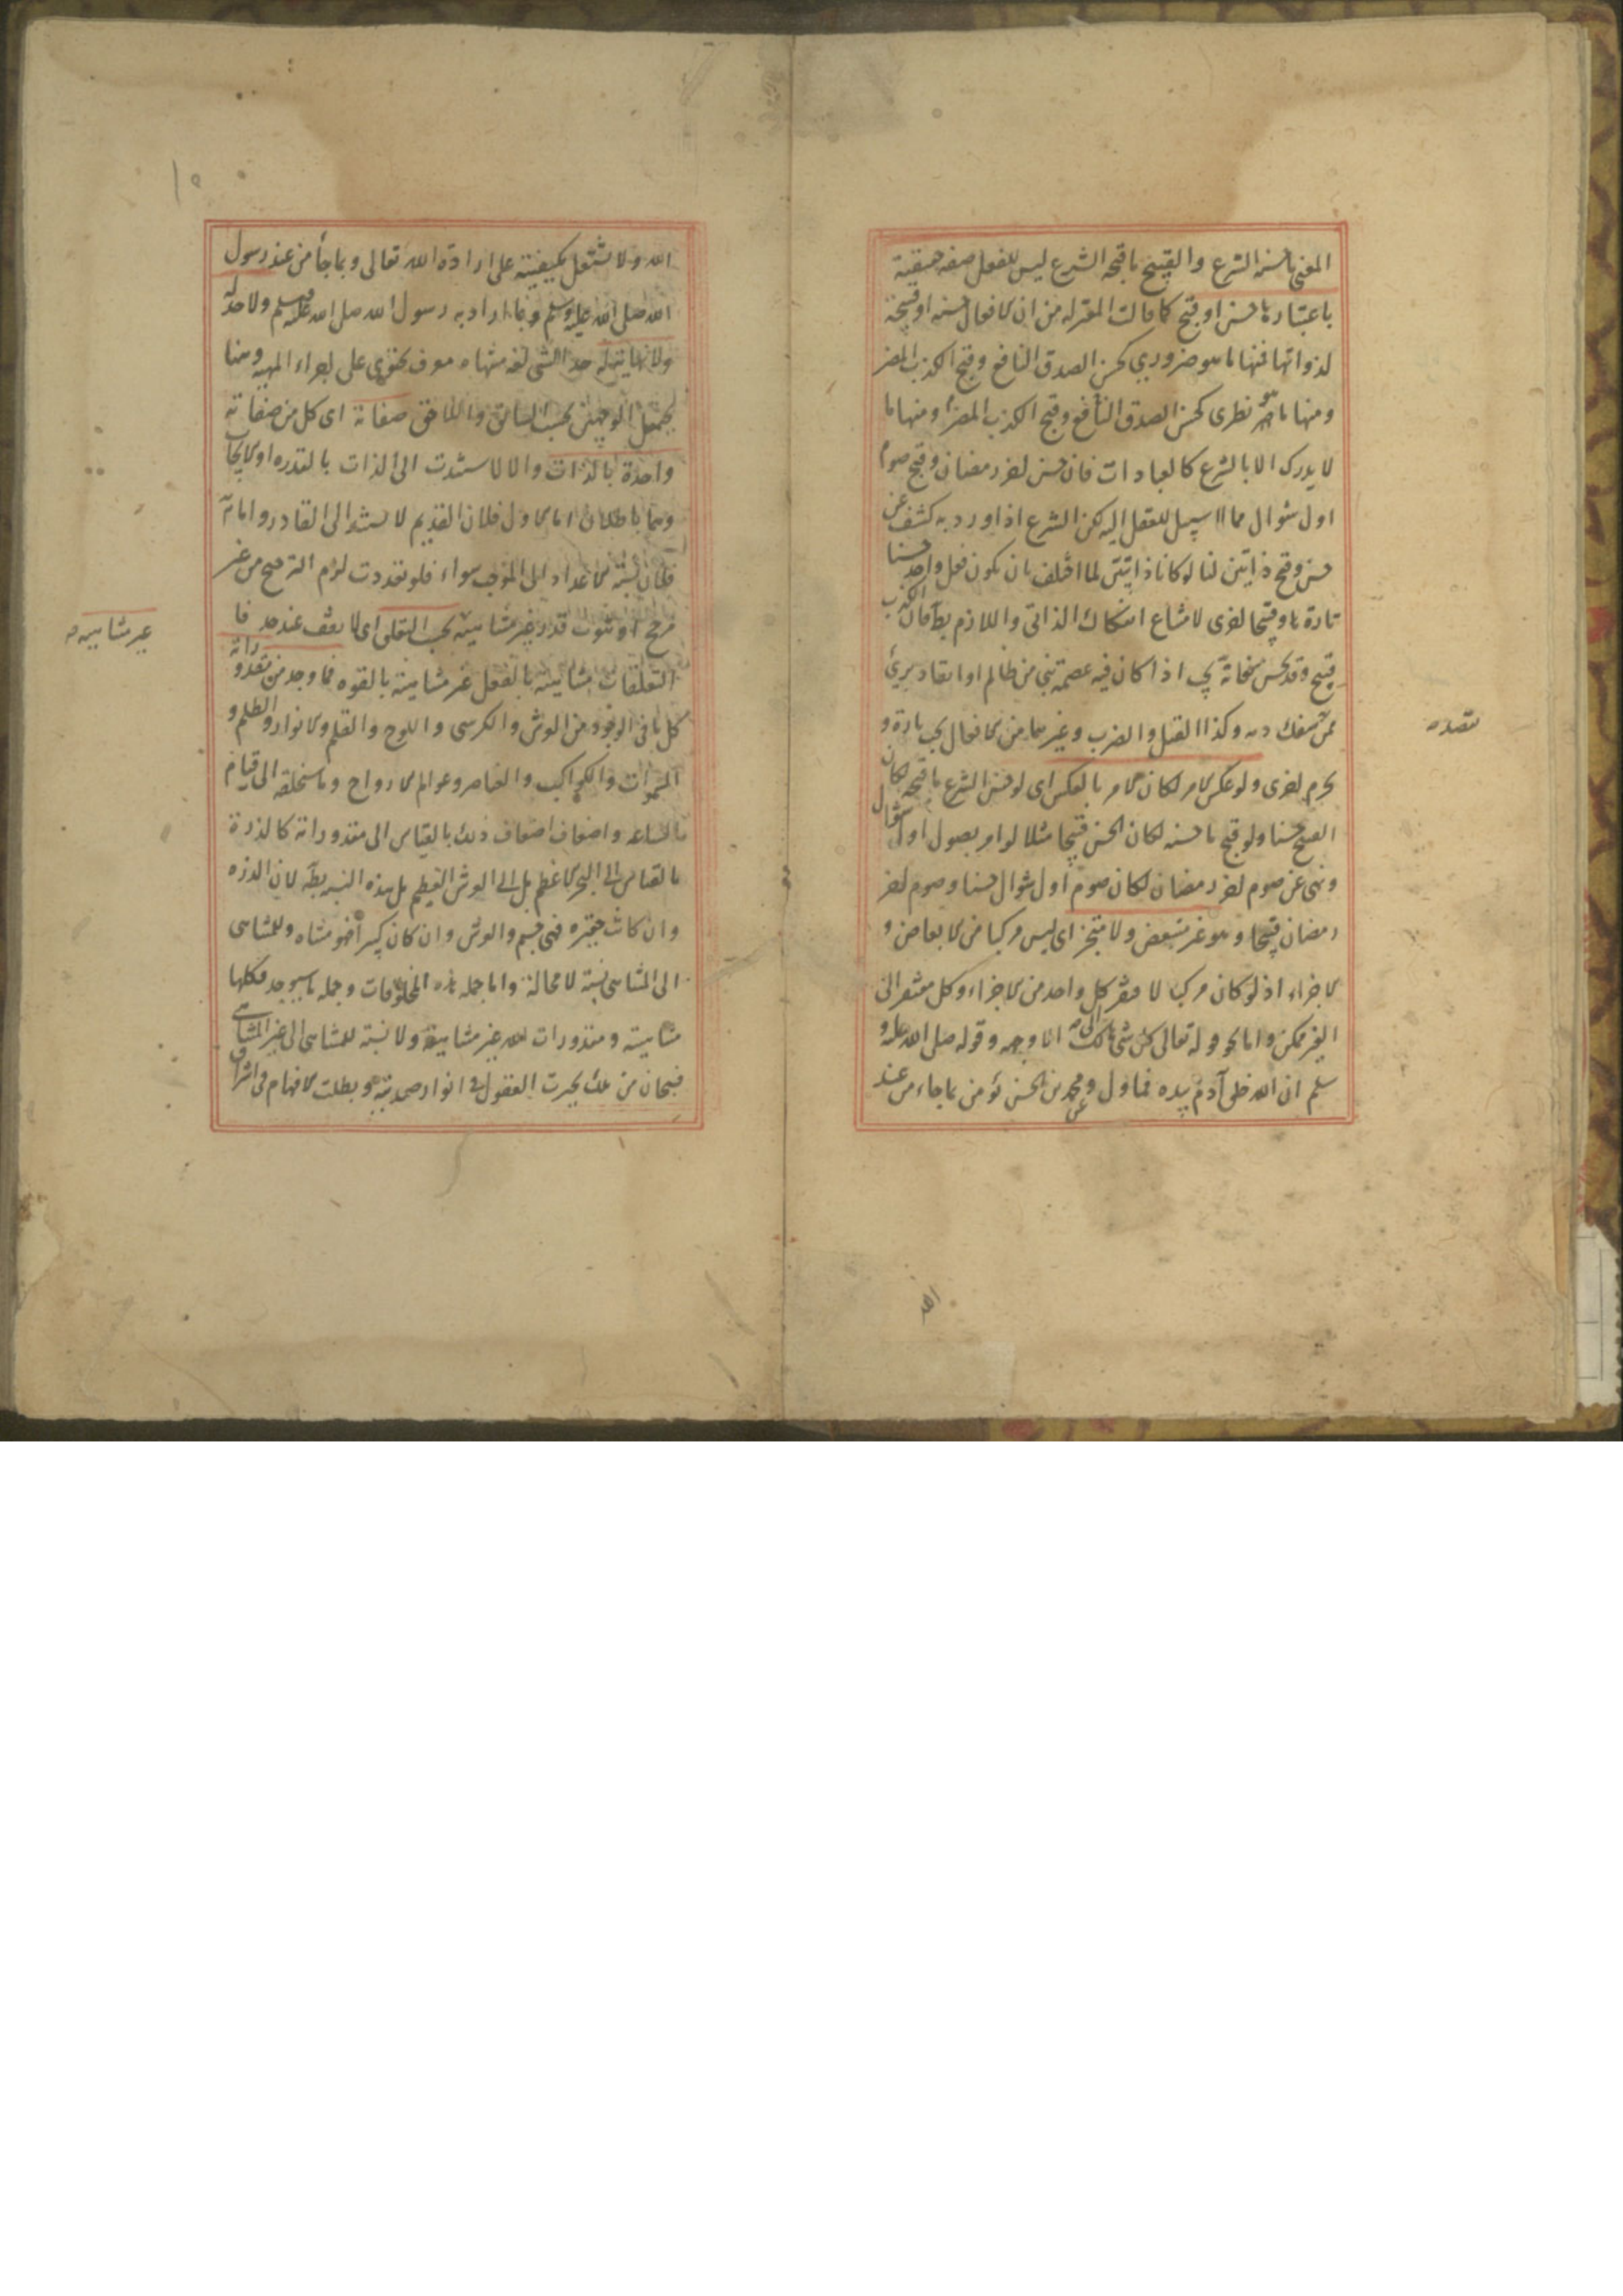 المعنى ما حسنه الشرع والقبيح ما قبحه الشرع ليس للفعل صفة حقيقية
باعتبارها حسن او قبح كما قالت المعتزلة من ان الافعال حسنة او قبيحة
لذواتها فمنها ما هو ضروري كحسن الصدق النافع وقبح الكذب المضر
ومنها ما هو نظرى كحسن الصدق النافع وقبح الكذب المضر ومنها ما
لا يدرك الا بالشرع كالعبادات فان حسن اخر رمضان وقبح صوم
اول شوال مما لا سبيل للعقل اليه لكن الشرع اذا ورد به كشف عن
حسن وقبح ذاتيين لنا لو كانا ذاتيين لما اختلف بان يكون فعل واحد حسنا
تارة وقبيحا اخرى لامتناع انفكاك الذاتى واللازم بط فان الكذب
قبيح وقد يحسن بل يجب اذا كان فيه عصمة نبى من ظالم او انقاذ برئ
ممن سفك دمه وكذا القتل والضرب وغيرهما من الافعال يجب تارة و
يحرم اخرى ولو عكس الامر لكان الامر بالعكس اى لو حسن الشرع ما قبحه لكان
القبيح حسنا ولو قبح ما حسنه لكان الحسن قبيحا مثلا لو امر بصوم اول شوال
ونهى عن صوم اخر رمضان لكان صوم اول شوال حسنا وصوم اخر
رمضان قبيحا وهو غير متبعض ولا متجز اى ليس مركبا من الابعاض و
الاجزاء اذ لو كان مركبا لافتقر كل واحد من الاجزاء وكل مفتقر الى
الغير ممكن واما نحو قوله تعالى كل شئ هالك الا وجهه وقوله صلى الله عليه و
سلم ان الله خلق آدم بيده فماول وعن محمد بن الحسن نؤمن بما جاء من عند
الله
الله ولا نشتغل بكيفيته على ارادة الله تعالى وبما جأ من عند رسول
الله صلى الله عليه وسلم وبما اراد به رسول الله صلى الله عليه وسلم ولا حد له
ولا نهاية له حد الشئ لغة منتهاه معرف يحتوى على اجزاء المهية وههنا
يحتمل الوجهين بحسب السابق واللاحق صفاته اى كل من صفاته
واحدة بالذات والا لاستندت الى الذات بالقدرة او الايجاب
وهما باطلان اما الاول فلان القديم لا يستند الى القادر واما
فلان نسبة الاعداد الى الموجب سواء فلو تعددت لزم الترجيح من غير
مرجح او ثبوت قدر غير متناهية بحسب التعلق اى لا يقف عند حد فا
التعلقات متناهية بالفعل غير متناهية بالقوة فما وجد من مقدوراته
كل ما فى الوجود من العرش والكرسى واللوح والقلم والانوار والظلم و
السموات والكواكب والعناصر وعوالم الارواح وما سنخلقه الى قيام
الساعة واضعاف اضعاف ذلك بالقياس الى مقدوراته كالذرة
بالقياس الى البحر الاعظم بل الى العرش العظيم بل هذه النسبة بط لان الذرة
وان كانت حقيرة فهى جسم والعرش وان كان كبيرا فهو متناه وللمتناهى
الى المتناهى نسبة لا محالة واما جملة هذه المخلوقات وجملة ما سيوجد فكلها
متناهية ومقدورات الله غير متناهية ولا نسبة للمتناهى الى غير المتناهى
فسبحان من ملك تحيرت العقول فى انوار صمديته وبطلت الافهام فى اشراق
غير متناهية